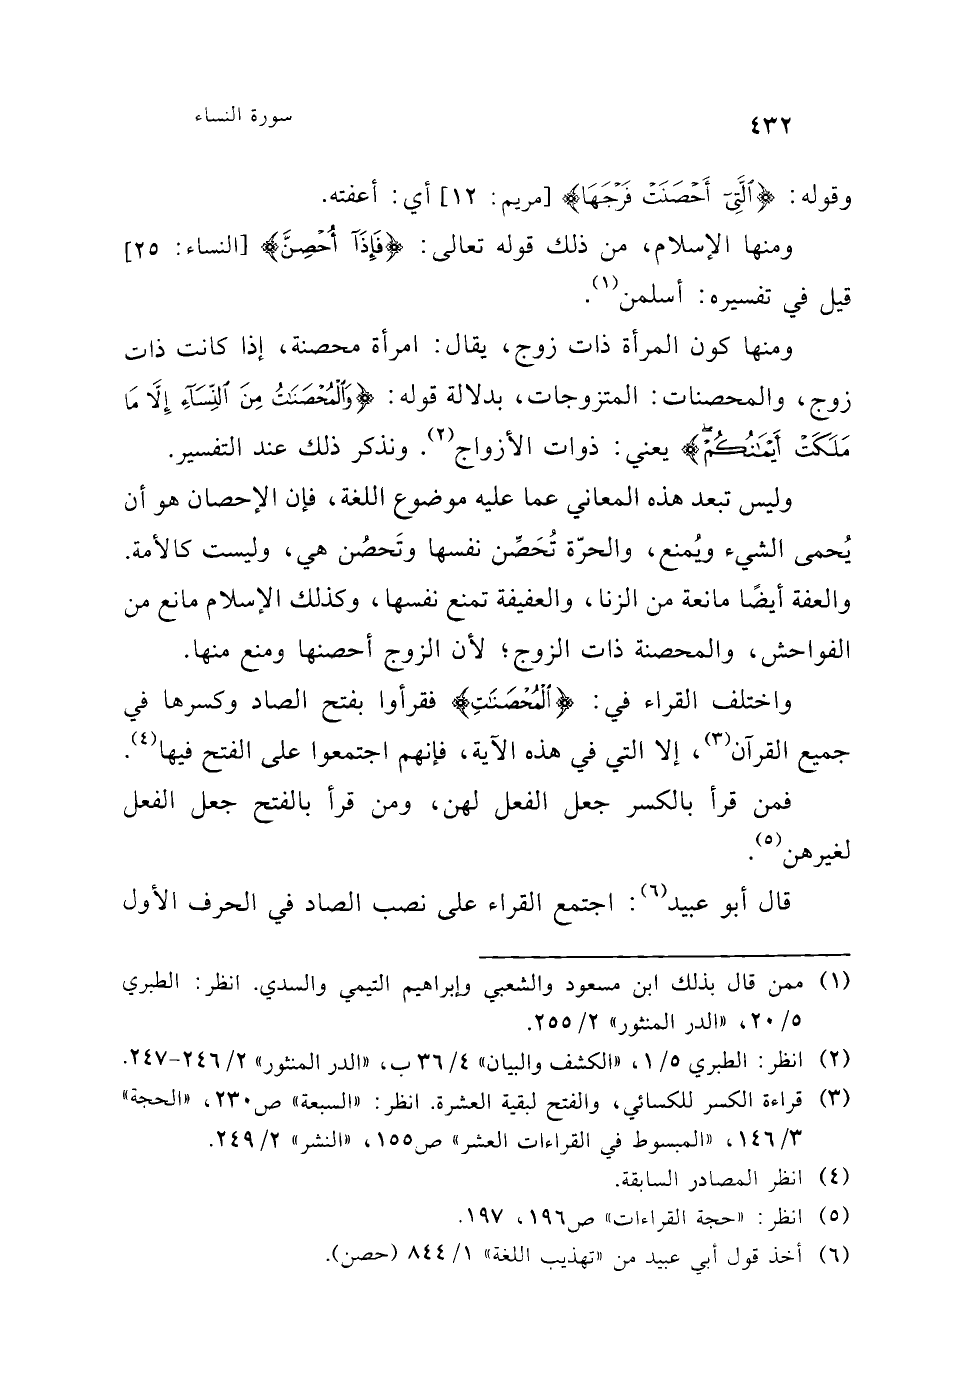 ٤٣٢ سورة النساء
وقوله: ﴿ٱلَّتِىٓ أَحْصَنَتْ فَرْجَهَا﴾ [مريم: ١٢] أي: أعفته.
ومنها الإسلام، من ذلك قوله تعالى: ﴿فَإِذَآ أُحْصِنَّ﴾ [النساء: ٢٥]
قيل في تفسيره: أسلمن(١).
ومنها كون المرأة ذات زوج، يقال: امرأة محصنة، إذا كانت ذات
زوج، والمحصنات: المتزوجات، بدلالة قوله: ﴿وَٱلْمُحْصَنَٰتُ مِنَ ٱلنِّسَآءِ إِلَّا مَا
مَلَكَتْ أَيْمَٰنُكُمْ ۖ﴾ يعني: ذوات الأزواج(٢). ونذكر ذلك عند التفسير.
وليس تبعد هذه المعاني عما عليه موضوع اللغة، فإن الإحصان هو أن
يُحمى الشيء ويُمنع، والحرّة تُحَصِّن نفسها وتَحصُن هي، وليست كالأمة.
والعفة أيضًا مانعة من الزنا، والعفيفة تمنع نفسها، وكذلك الإسلام مانع من
الفواحش، والمحصنة ذات الزوج؛ لأن الزوج أحصنها ومنع منها.
واختلف القراء في: ﴿ٱلْمُحْصَنَٰتِ﴾ فقرأوا بفتح الصاد وكسرها في
جميع القرآن(٣)، إلا التي في هذه الآية، فإنهم اجتمعوا على الفتح فيها(٤).
فمن قرأ بالكسر جعل الفعل لهن، ومن قرأ بالفتح جعل الفعل
لغيرهن(٥).
قال أبو عبيد(٦): اجتمع القراء على نصب الصاد في الحرف الأول
(١) ممن قال بذلك ابن مسعود والشعبي وإبراهيم التيمي والسدي. انظر: الطبري
٥/ ٢٠، «الدر المنثور» ٢/ ٢٥٥.
(٢) انظر: الطبري ٥/ ١، «الكشف والبيان» ٤/ ٣٦ ب، «الدر المنثور» ٢/ ٢٤٦-٢٤٧.
(٣) قراءة الكسر للكسائي، والفتح لبقية العشرة. انظر: «السبعة» ص٢٣٠، «الحجة»
٣/ ١٤٦، «المبسوط في القراءات العشر» ص١٥٥، «النشر» ٢/ ٢٤٩.
(٤) انظر المصادر السابقة.
(٥) انظر: «حجة القراءات» ص١٩٦، ١٩٧.
(٦) أخذ قول أبي عبيد من «تهذيب اللغة» ١/ ٨٤٤ (حصن).